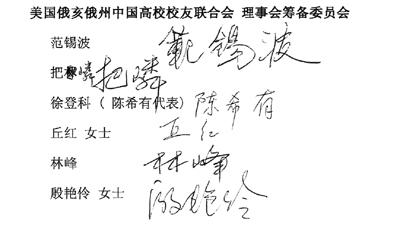 美国俄亥俄州中国高校校友联合会 理事会筹备委员会
范锡波 範锡波
把 嶙 把嶙
徐登科 ( 陈希有代表) 陈希有
丘红 女士 丘红
林峰 林峰
殷艳伶 女士 殷艳伶